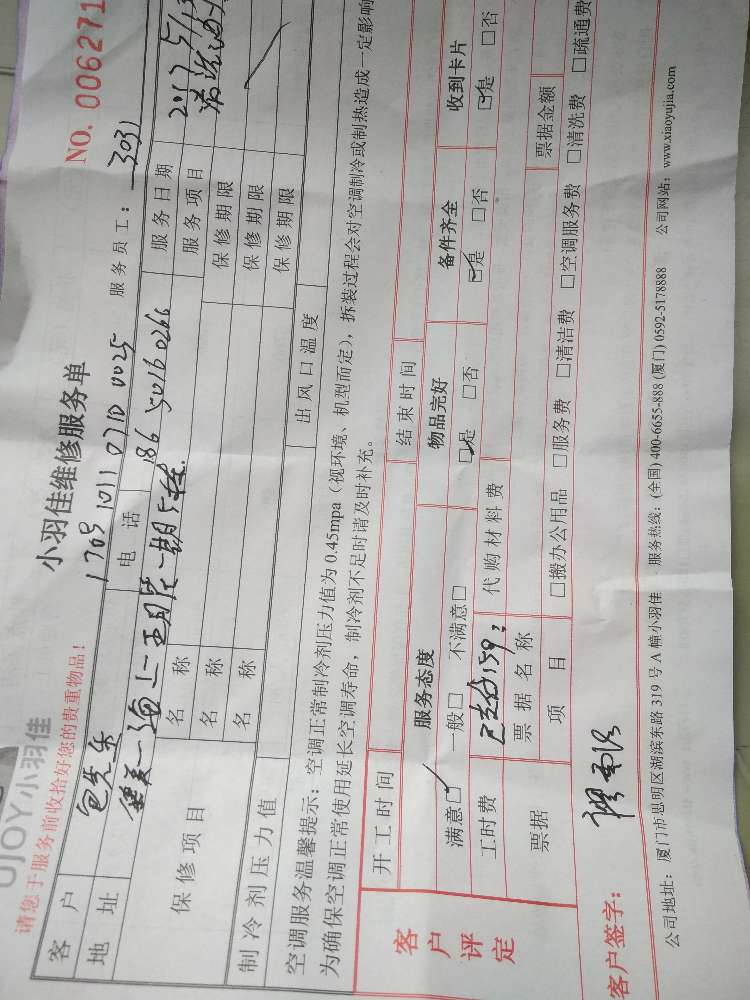 UJOY小羽佳
请您于服务前收拾好您的贵重物品!
小羽佳维修服务单
NO. 006271
1709 1011 0710 0025
服务员工: 3031
客户 包先生 电话 186 5016 0266 服务日期 2017 5/13
地址 服务项目 清洗油
保修项目 名称 保修期限
名称 保修期限
制冷剂压力值 名称 保修期限
出风口温度
空调服务温馨提示:空调正常制冷剂压力值为 0.45mpa(视环境、机型而定),拆装过程会对空调制冷或制热造成一定影响
为确保空调正常使用延长空调寿命,制冷剂不足时请及时补充。
客户评定
开工时间 结束时间
服务态度 物品完好 备件齐全 收到卡片
满意□ 一般□ 不满意□ □是 □否 □是 □否 □是 □否
工时费 159 代购材料费
票据 票据名称 票据金额
项目 □搬办公用品 □服务费 □清洁费 □空调服务费 □清洗费 □疏通费
客户签字:
公司地址:厦门市思明区湖滨东路 319 号 A 幢小羽佳 服务热线:(全国) 400-6655-888 (厦门) 0592-5178888 公司网站:www.xiaoyujia.com